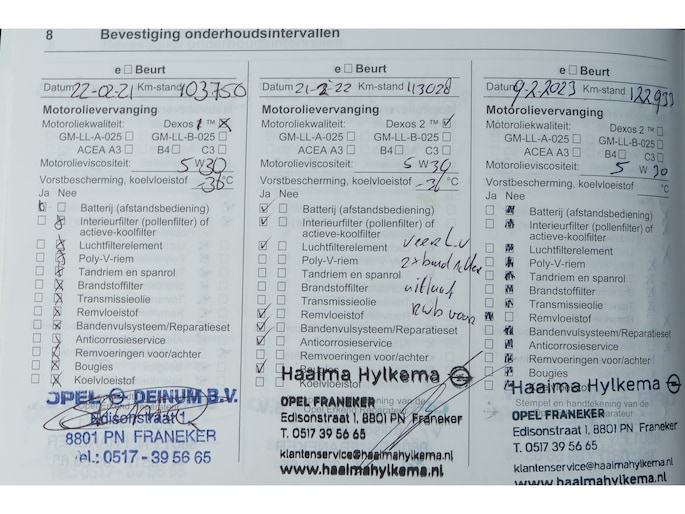 8 Bevestiging onderhoudsintervallen
e □ Beurt
Datum 22-02-21 Km-stand 103750
Motorolievervanging
Motoroliekwaliteit: Dexos 1 ™ ☒
GM-LL-A-025 □ GM-LL-B-025 □
ACEA A3 □ B4 □ C3 □
Motorolieviscositeit: 5 W 30
Vorstbescherming, koelvloeistof -36 °C
Ja Nee
Batterij (afstandsbediening)
Interieurfilter (pollenfilter) of
actieve-koolfilter
Luchtfilterelement
Poly-V-riem
Tandriem en spanrol
Brandstoffilter
Transmissieolie
Remvloeistof
Bandenvulsysteem/Reparatieset
Anticorrosieservice
Remvoeringen voor/achter
Bougies
Koelvloeistof
OPEL DEINUM B.V.
Edisonstraat 1
8801 PN FRANEKER
Tel.: 0517 - 39 56 65
e □ Beurt
Datum 21-2-22 Km-stand 113028
Motorolievervanging
Motoroliekwaliteit: Dexos 2 ™ ☑
GM-LL-A-025 □ GM-LL-B-025 □
ACEA A3 □ B4 □ C3 □
Motorolieviscositeit: 5 W 30
Vorstbescherming, koelvloeistof -36 °C
Ja Nee
Batterij (afstandsbediening)
Interieurfilter (pollenfilter) of
actieve-koolfilter
Luchtfilterelement veer L.V
Poly-V-riem 2x band
Tandriem en spanrol
Brandstoffilter uitlaat
Transmissieolie
Remvloeistof voor
Bandenvulsysteem/Reparatieset
Anticorrosieservice
Remvoeringen voor/achter
Koelvloeistof
Haaima Hylkema
OPEL FRANEKER
Edisonstraat 1, 8801 PN Franeker
T. 0517 39 56 65
klantenservice@haaimahylkema.nl
www.haaimahylkema.nl
e □ Beurt
Datum 9-2-2023 Km-stand 122933
Motorolievervanging
Motoroliekwaliteit: Dexos 2 ™ □
GM-LL-A-025 □ GM-LL-B-025 □
ACEA A3 □ B4 □ C3 □
Motorolieviscositeit: 5 W 30
Vorstbescherming, koelvloeistof °C
Ja Nee
Batterij (afstandsbediening)
Interieurfilter (pollenfilter) of
actieve-koolfilter
Luchtfilterelement
Poly-V-riem
Tandriem en spanrol
Brandstoffilter
Transmissieolie
Remvloeistof
Bandenvulsysteem/Reparatieset
Anticorrosieservice
Remvoeringen voor/achter
Bougies
Haaima Hylkema
Stempel en handtekening van de
OPEL FRANEKER
Edisonstraat 1, 8801 PN Franeker
T. 0517 39 56 65
klantenservice@haaimahylkema.nl
www.haaimahylkema.nl